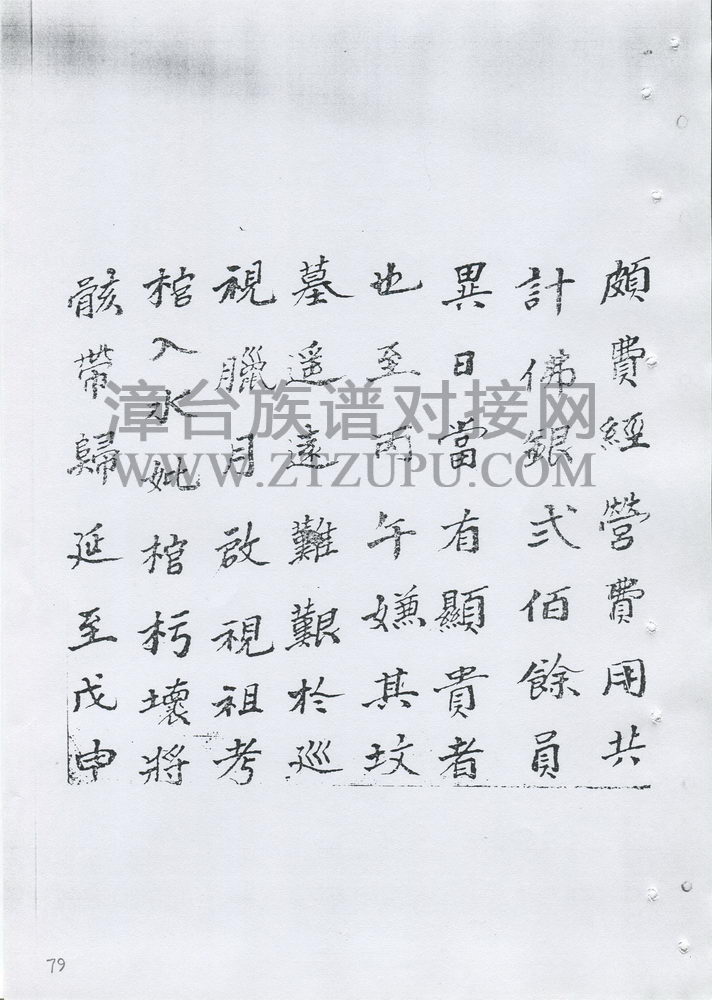 頗費經營費用共
計佛銀弍佰餘員
異日當有顯貴者
也至丙午嫌其坟
墓遥遠難艱於巡
視臘月啟視祖考
棺入水妣棺朽壞將
骸帶歸延至戊申
漳台族谱对接网
WWW.ZTZUPU.COM
79